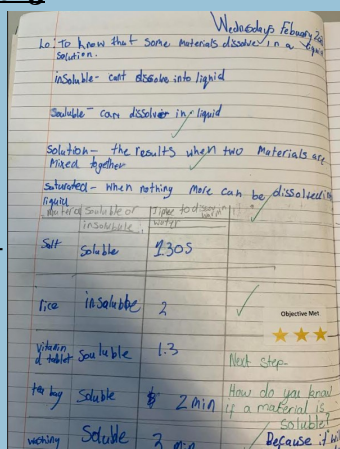 Wednesday February
Lo: To know that some materials dissolve in a liquid
solution.
insoluble - cant dissolve into liquid
Souluble - can dissolve in liquid
Solution - the results when two Materials are
Mixed together
saturated - when nothing More can be dissolved in
liquid
Material Souluble or insoluble Time to dissolve water
Salt Soluble 1.30s
rice insoluble 2
Objective Met
vitamin d tablet Souluble 1.3
Next step-
tea bag Soluble 2 min
How do you know
if a material is
soluble?
washing Soluble 2 min
Because if